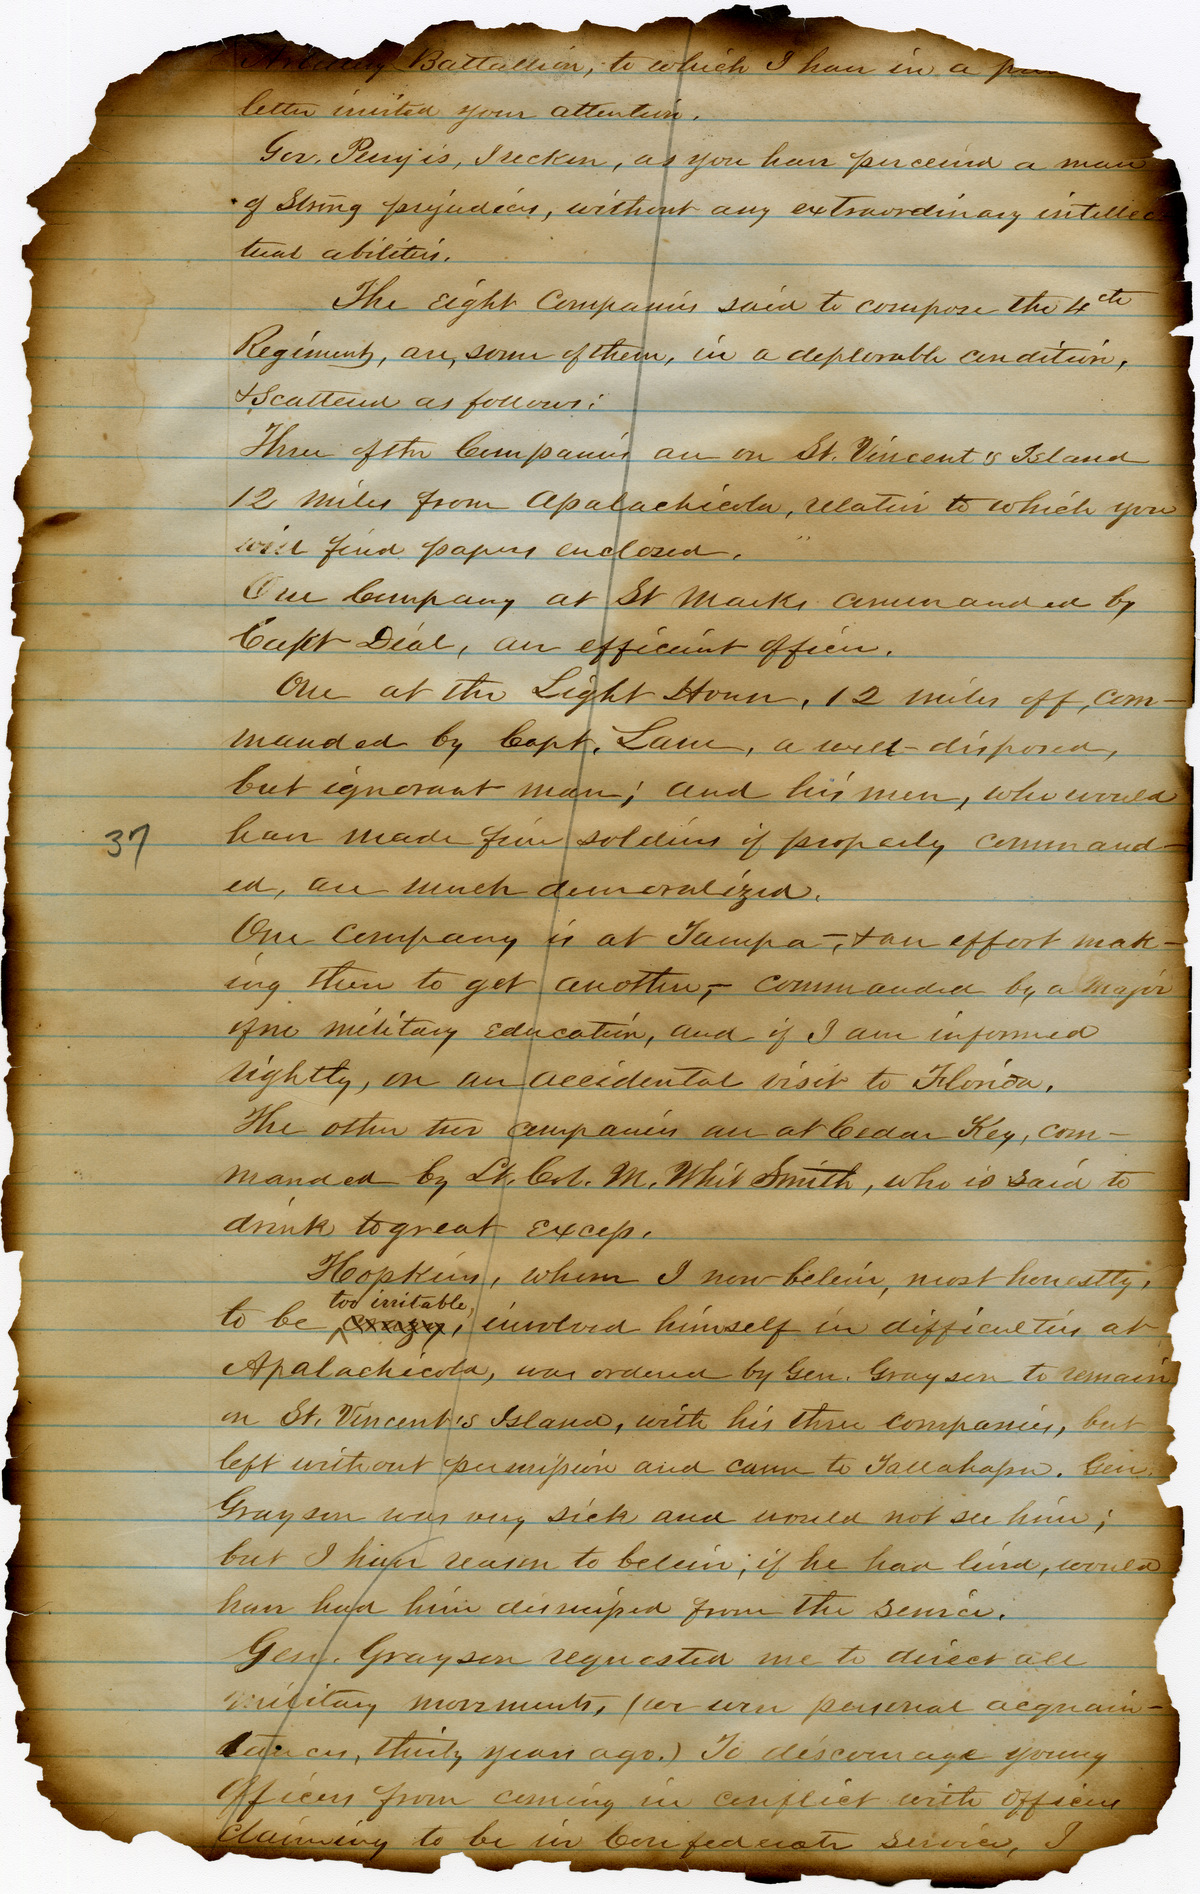 Artillery Battallion, to which I have in a
letter invited your attention.
Gov. Perry is, I reckon, as you have perceived a man
of Strong prejudices, without any extraordinary intellec
tual abilities.
The Eight Companies said to compose the 4th
Regiment, are, some of them, in a deplorable condition,
& Scattered as follows:
Three of the Companies are on St. Vincent's Island
12 miles from Apalachicola, relative to which you
will find papers enclosed.
One Company at St Marks commanded by
Capt Dial, an efficient officer.
One at the Light House, 12 miles off, com-
manded by Capt. Lane, a well-disposed,
but ignorant man; and his men, who would
37
have made fine soldiers if properly command-
ed, are much demoralized.
One company is at Tampa-, & an effort mak-
ing there to get another,- commanded by a Major
of no military education, and if I am informed
rightly, on an accidental visit to Florida.
The other two companies are at Cedar Key, com-
manded by Lt. Col. M. Whit Smith, who is said to
drink to great excess.
Hopkins, whom I now believe, most honestly,
too irritable,
to be crazy, involved himself in difficulties at
Apalachicola, was ordered by Gen. Grayson to remain
on St. Vincent's Island, with his three companies, but
left without permission and came to Tallahassee. Gen.
Grayson was very sick and would not see him;
but I have reason to believe, if he had lived, would
have had him dismissed from the service.
Gen. Grayson requested me to direct all
military movements, (we were personal acquain-
tances, thirty years ago.) To discourage young
officers from coming in conflict with officers
claiming to be in Confederate service, I